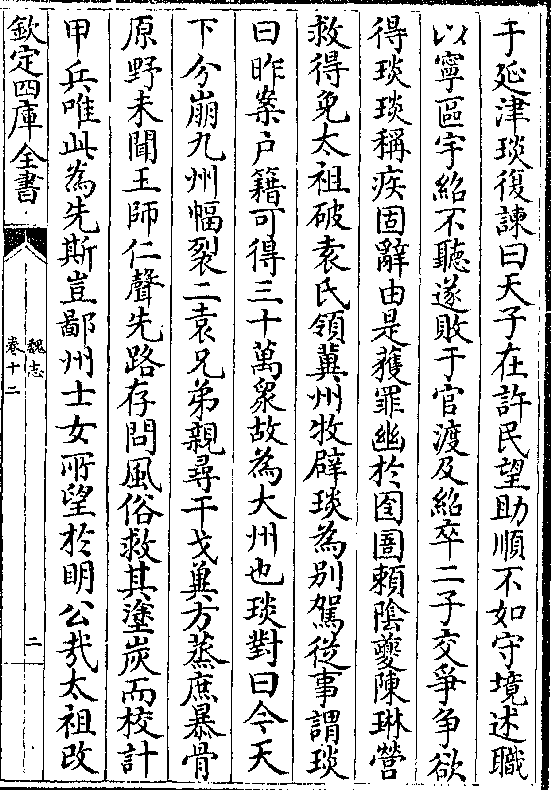 于延津琰復諫曰天子在許民望助順不如守境述職
以寧區宇紹不聽遂敗于官渡及紹卒二子交爭争欲
得琰琰稱疾固辭由是獲罪幽於囹圄頼陰夔陳琳營
救得免太祖破袁氏領冀州牧辟琰為別駕從事謂琰
曰昨案户籍可得三十萬衆故為大州也琰對曰今天
下分崩九州幅裂二袁兄弟親尋干戈兾方蒸庶暴骨
原野未聞王師仁聲先路存問風俗救其塗炭而校計
甲兵唯此為先斯豈鄙州士女所望於明公哉太祖改
欽定四庫全書
魏志
卷十二
二